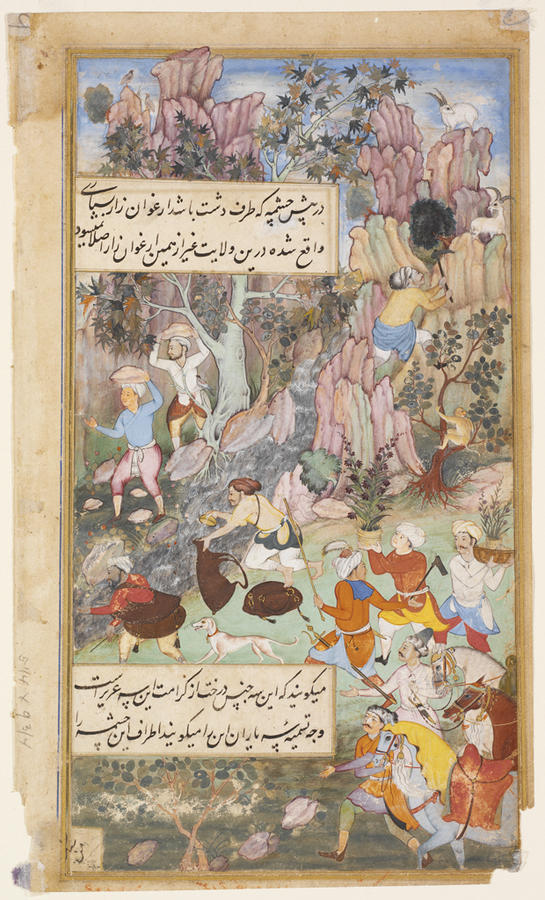 در پیش چشمه که طرف دشت باشد ارغوان زار بسیاری
واقع شده درین ولایت غیر از همین ارغوان زار اصلا نمیشود
میگویند که این سه جنس درخت از کرامت این سه عزیزست
وجه تسمیه سه یاران این را میگویند اطراف این چشمه را